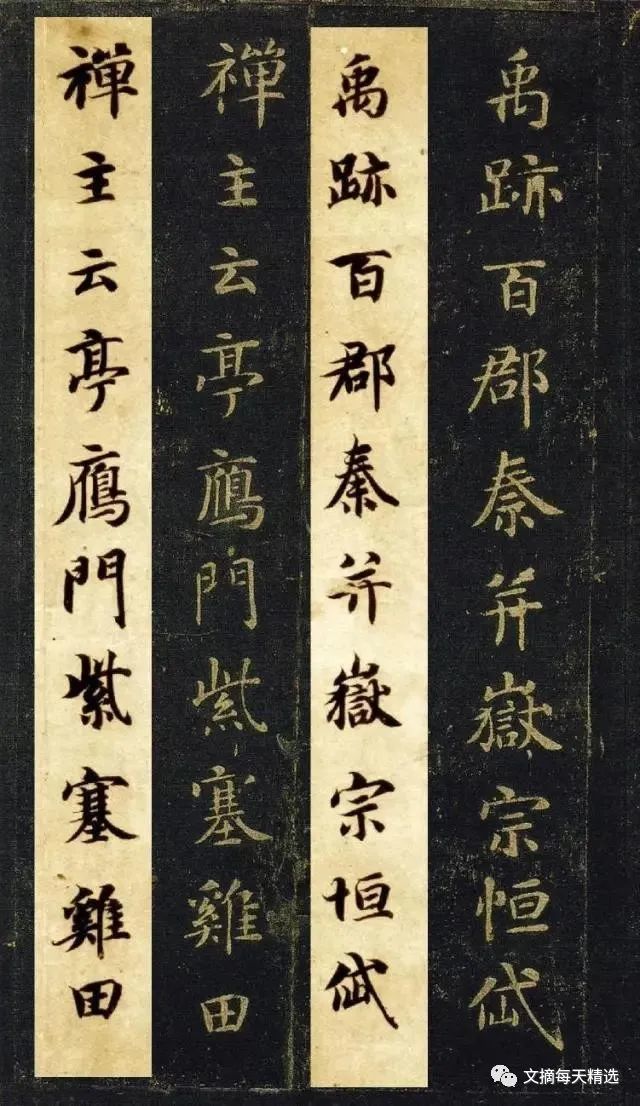 禹跡百郡秦并嶽宗恒岱
禹跡百郡秦并嶽宗恒岱
禪主云亭鴈門紫塞雞田
禪主云亭鴈門紫塞雞田
文摘每天精选